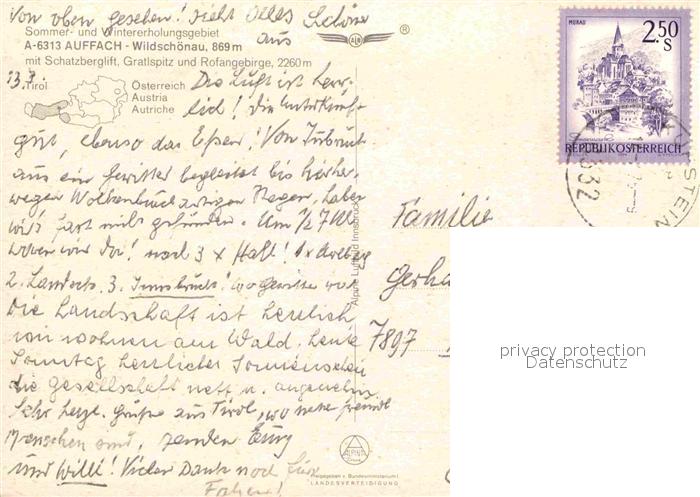 Von oben gesehen! sieht alles schöne
aus
Sommer- und Wintererholungsgebiet
A-6313 AUFFACH - Wildschönau, 869 m
mit Schatzberglift, Gratlspitz und Rofangebirge, 2260 m
ALPI
®
Tirol
Österreich
Austria
Autriche
Die Luft ist herr-
lich! die Unterkunft
gut, ebenso das Essen! Von Insbruck
aus ein Gewitter begleitet bis hierher,
wegen Wolkenbruchartigen Regen, haben
wir's fast nicht gefunden. Um 1/2 7 Uhr
waren wir da! nach 3 x Halt! 1x Arlberg
2. Landeck. 3. Innsbruck! wo Gewitter war
Die Landschaft ist herrlich
wir wohnen am Wald. heute
Sonntag herrlicher Sonnenschein
die Gesellschaft nett u. angenehm.
Sehr herzl. Grüße aus Tirol, wo nette
Menschen sind, senden
und Willi! Vielen Dank noch fürs
Fahren!
Alpine Luftbild Innsbruck
MURAU
2.50
S
REPUBLIK ÖSTERREICH
6332
Familie
7897
privacy protection
Datenschutz
ALPINE
Freigegeben v. Bundesministerium f.
LANDESVERTEIDIGUNG